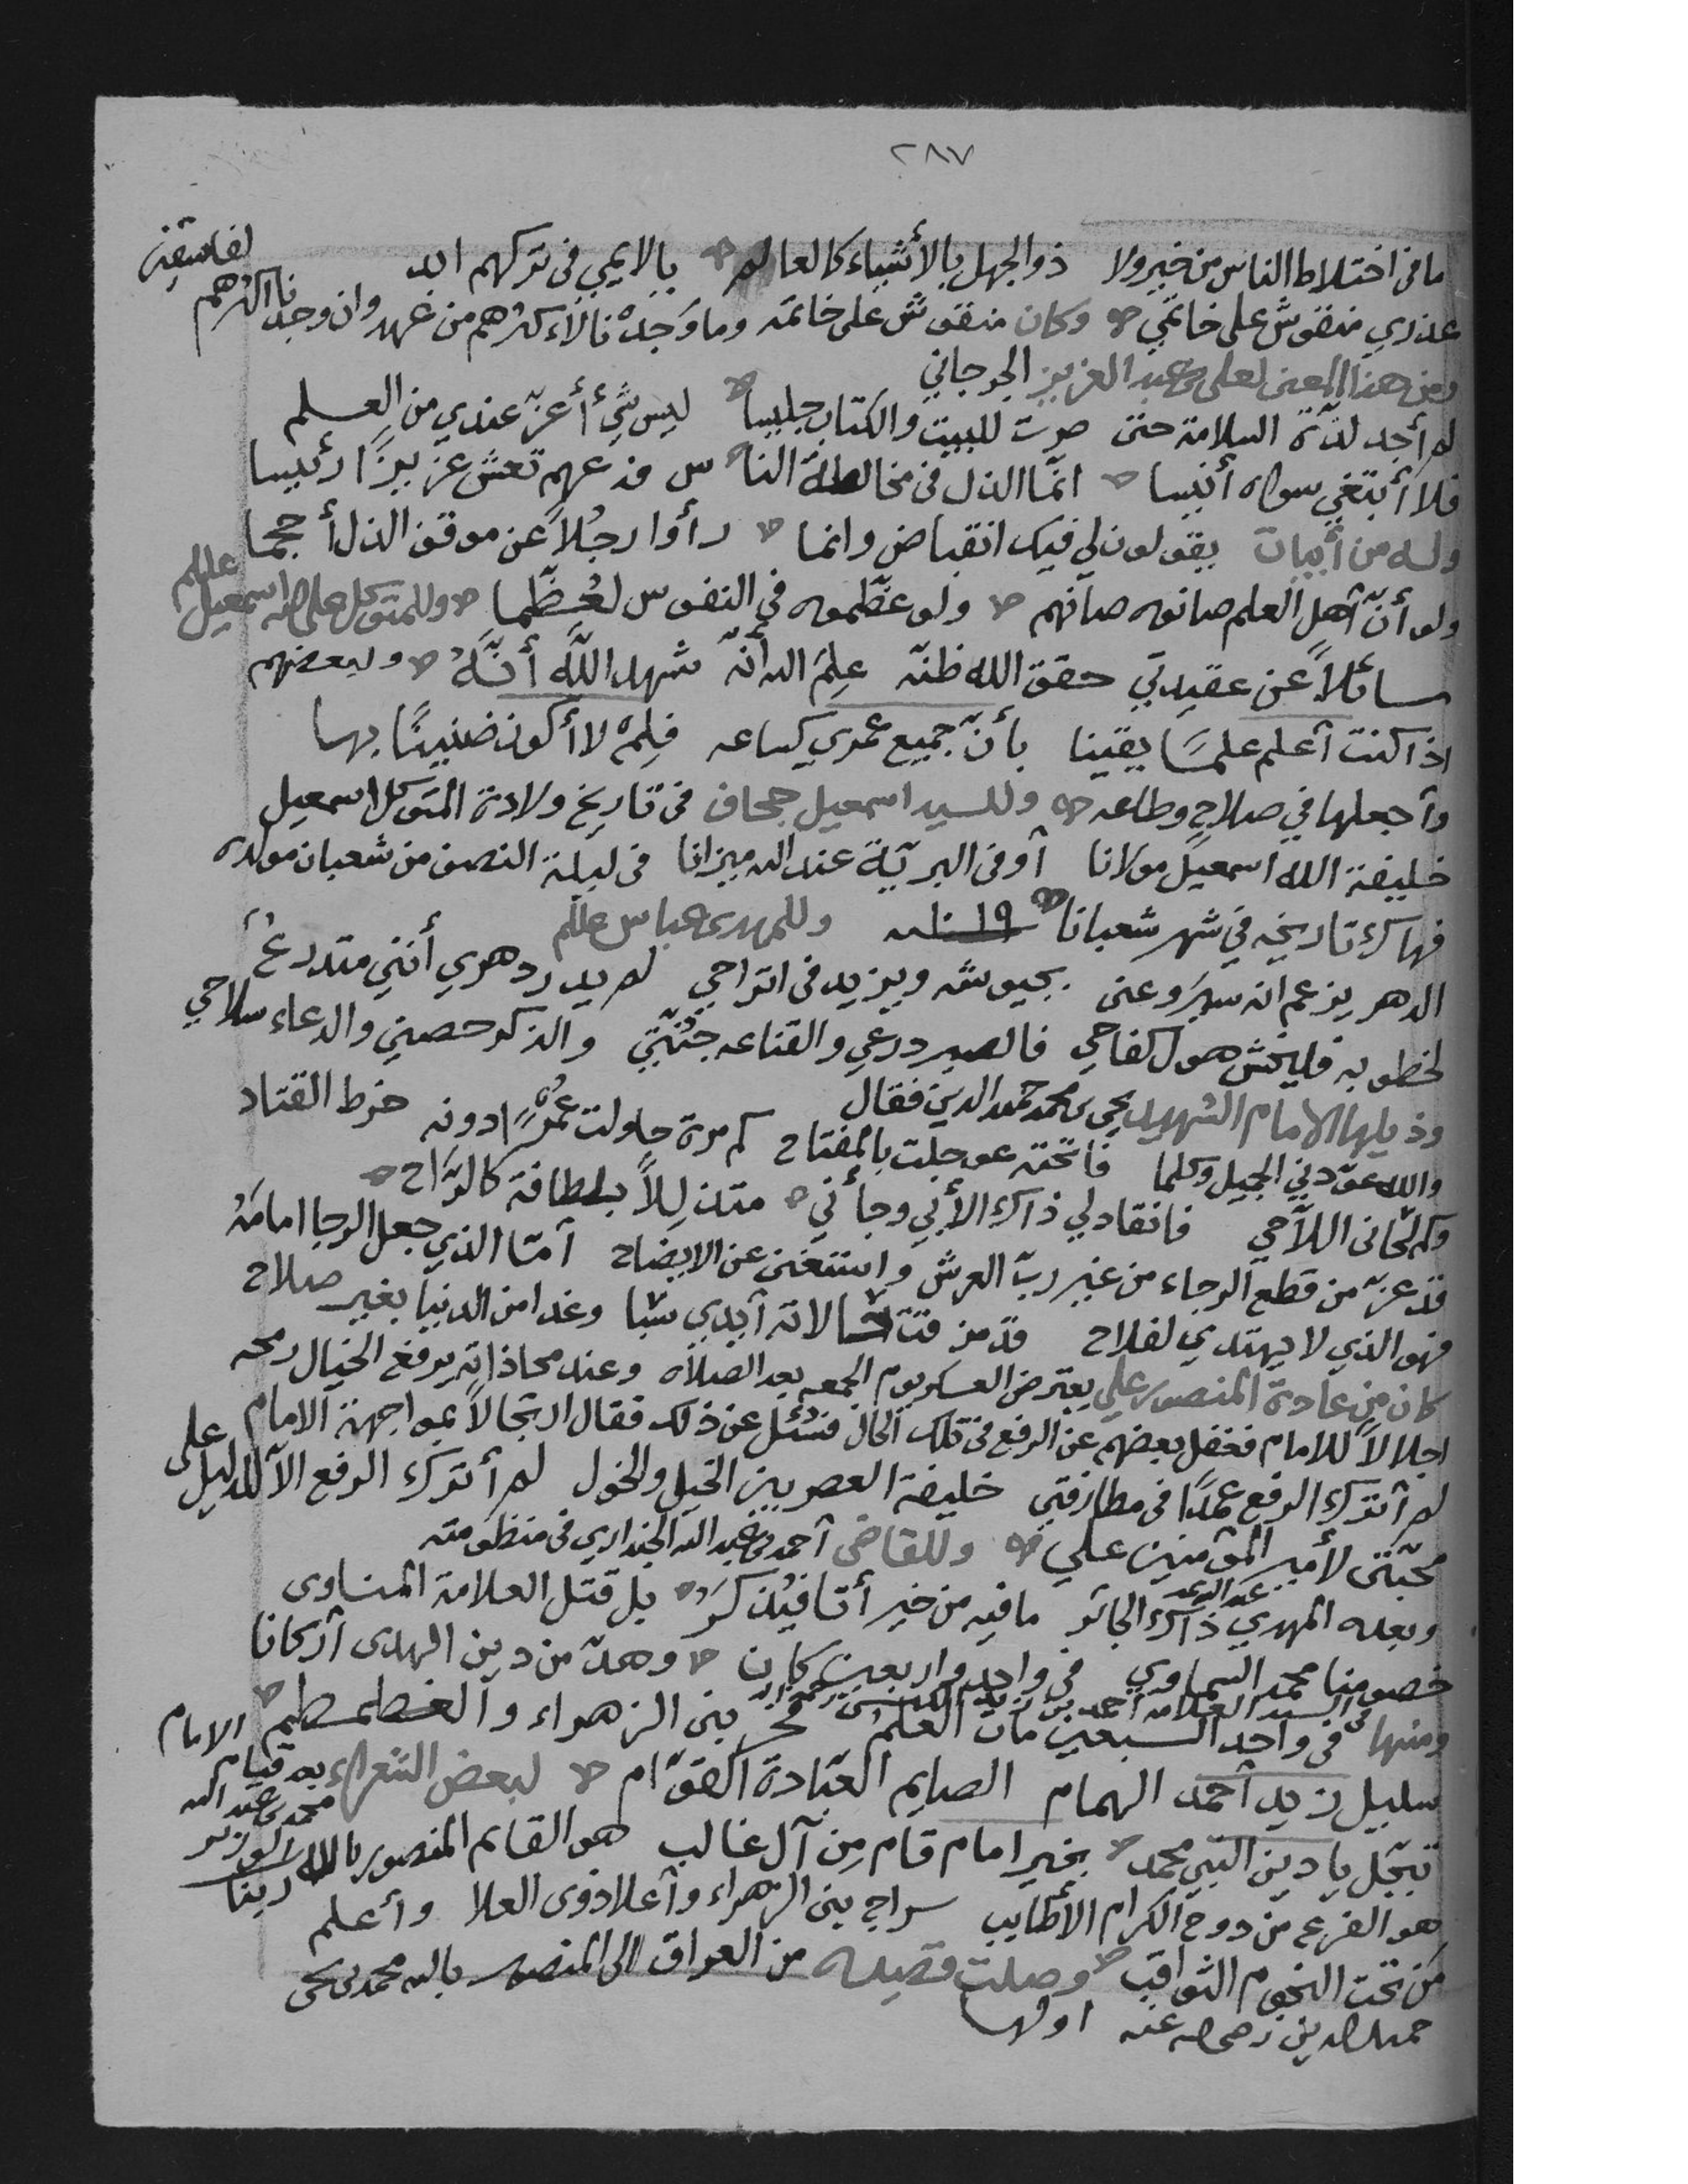 ٢٨٧
ما في اختلاط الناس من خير ولا ذو الجهل بالأشياء كالعالم يا لائمي في تركهم
عذري منقوش على خاتمي وكان منقوش على خاتمه وما وجدنا لأكثرهم من عهد وان وجدنا أكثرهم لفاسقين
ومن هذا المعنى لعلي بن عبد العزيز الجرجاني
لم أجد لذة السلامة حتى صرت للبيت والكتاب جليسا ليس شيء أعز عندي من العلم
فلا أبتغي سواه أنيسا انما الذل في مخالطة النا س فدعهم تعش عزيزًا رئيسا
وله من أبيات يقولون لي فيك انقباض وانما رأوا رجلاً عن موقف الذل أحجما
ولو أنّ أهل العلم صانوه صانهم ولو عظّموه في النفوس لعُظّما وللمتوكل على الله اسمعيل علىلم
سائلاً عن عقيدتي حقق الله ظنّه علِمَ الله أنّه شهد اللّه أنّهُ ولبعضهم
اذا كنت أعلم علمًا يقينا بأنّ جميع عمري كساعه فلِمْ لا أكون ضنينًا بها
وأجعلها في صلاح وطاعه وللسيد اسمعيل جحاف في تاريخ ولادة المتوكل اسمعيل
خليفة الله اسمعيل مولانا أوفى البريّة عند الله ميزانا في ليلة النصف من شعبان مولده
فهاك تاريخه في شهر شعبانا ١٠١٩ وللمهدي عباس علىلم
الدهر يزعم انه سيروعني بجيوشه ويزيد في اتراحي لم يدر دهري أنني متدرعٌ
لخطوبه فليخش هول كفاحي فالصبر درعي والقناعه جُنّتي والذكر حصني والدعاء سلاحي
وذيلها الامام الشهيد يحيى بن محمد حميد الدين فقال
والله عوّدني الجميل وكلما فاتحته عوجلت بالمفتاح كم مرة حاولت عُسْرًا دونه خرط القتاد
وكم لحاني اللاّحي فانقاد لي ذاك الأبي وجائني متذلِلاً بلطافة كالرّاح
قد عزّ من قطع الرجاء من غير ربّ العرش واستغنى عن الايضاح أمّا الذي جعل الرجا امامَهُ
فهو الذي لا يهتدي لفلاح قد مزقت حالاته أيدي سبا وغدا من الدنيا بغير صلاح
كان من عادة المنصور علي يعترض العسكر يوم الجمعه بعد الصلاه وعند محاذاته يرفع الخيال رمحه
اجلالاً للامام فغفل بعضهم عن الرفع في تلك الحال فسُئل عن ذلك فقال ارتجالاً بمواجهة الامام
لم أترك الرفع عمدًا في مطارفتي خليفة العصر بين الخيل والخول لم أترك الرفع الا للدليل على
محبّتي لأمير المؤمنين علي وللقاضي أحمد بن عبد الله الجنداري في منظومته
وبعده المهدي عبد الله ذاك الجائر ما فيه من خير بل قتل العلامة المناوى
خصومنا محمد السماوي في واحد وأربعين كان وهدّ من دين الهدى أركانا
ومنها في السيد العلامه احمد بن زيد الكبسي رحمه الله في واحد السبعين مات العلم فخر بني الزهراء والغطمطم الامام
سليل زيد أحمد الهمام الصايم العبّادة القوّام لبعض الشعراء
تبجّل يا دين النبي محمد بخير امام قام مِن آل غالب هو القايم المنصور بالله ربنا
هو الفرع من دوح الكرام الأطايب سراج بني الزهراء وأعلا ذوى العلا وأعلم
مَن تحت النجوم الثواقب وصلت قصيده من العراق الى المنصور بالله محمد بن يحيى
حميد الدين رضي الله عنه اولها